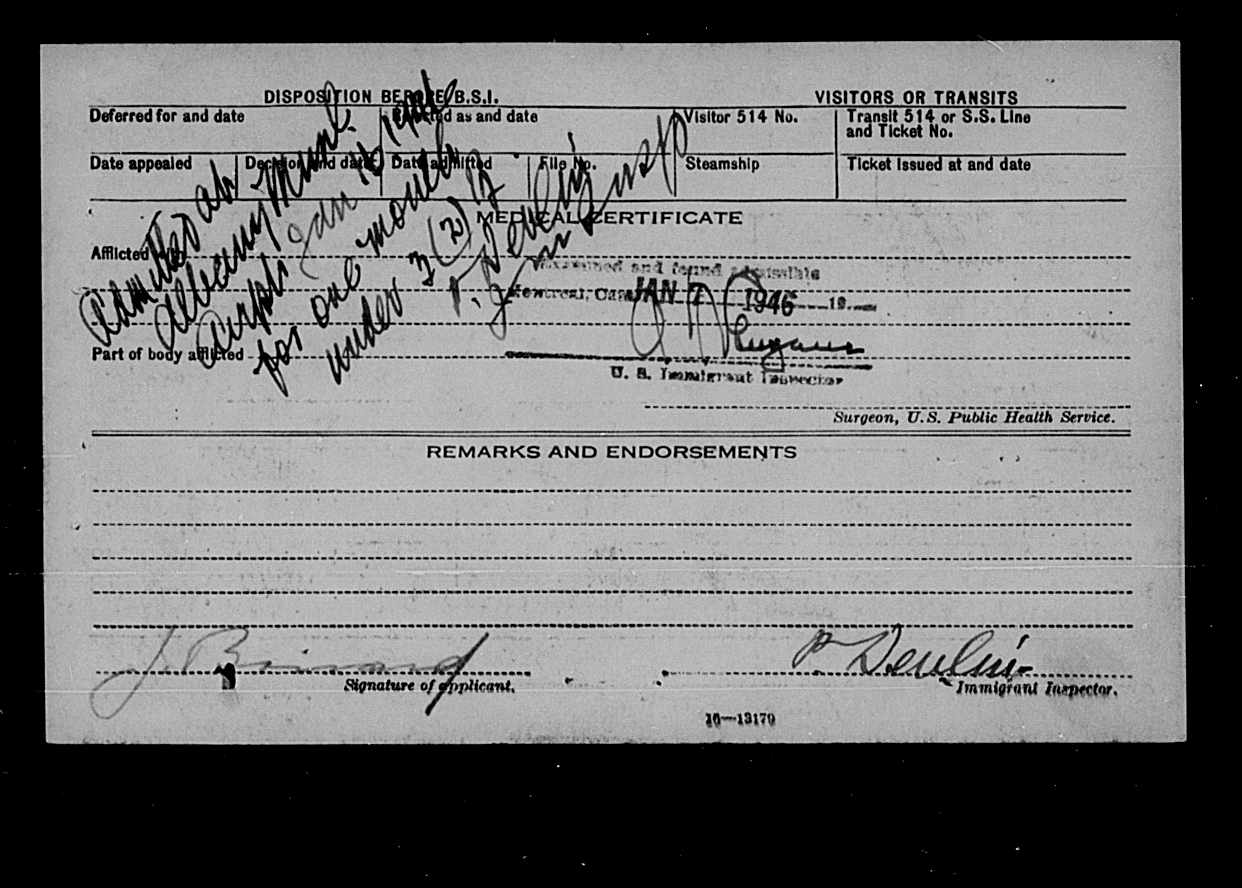 DISPOSITION BEFORE B.S.I.
VISITORS OR TRANSITS
Deferred for and date
as and date
Visitor 514 No.
Transit 514 or S.S. Line
and Ticket No.
Date appealed
Decision and date
Date admitted
File No.
Steamship
Ticket Issued at and date
Admitted at
Albany Munl.
Airpt Jan 16 1946
for one month
under 3(2) 
P. Devlin
Imm Insp
MEDICAL CERTIFICATE
Afflicted
Examined and found admissible
Montreal, Can. JAN 1946 19
Part of body afflicted
U. S. Immigrant Inspector
Surgeon, U.S. Public Health Service.
REMARKS AND ENDORSEMENTS
J.
P. Devlin
Signature of applicant.
Immigrant Inspector.
16—13179